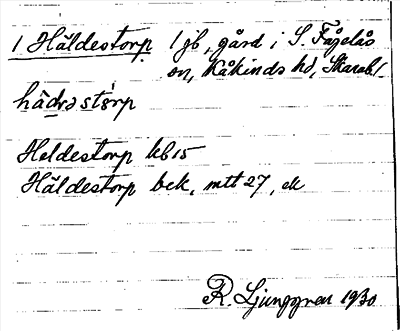 1 Häldestorp 1 jb, gård i S. Fågelås
sn, Kåkinds hd, Skarab l.
hä̀dɔstɔrp
Heldestorp kb 15
Häldestorp bek, mtt 27, ek
R. Ljunggren 1930